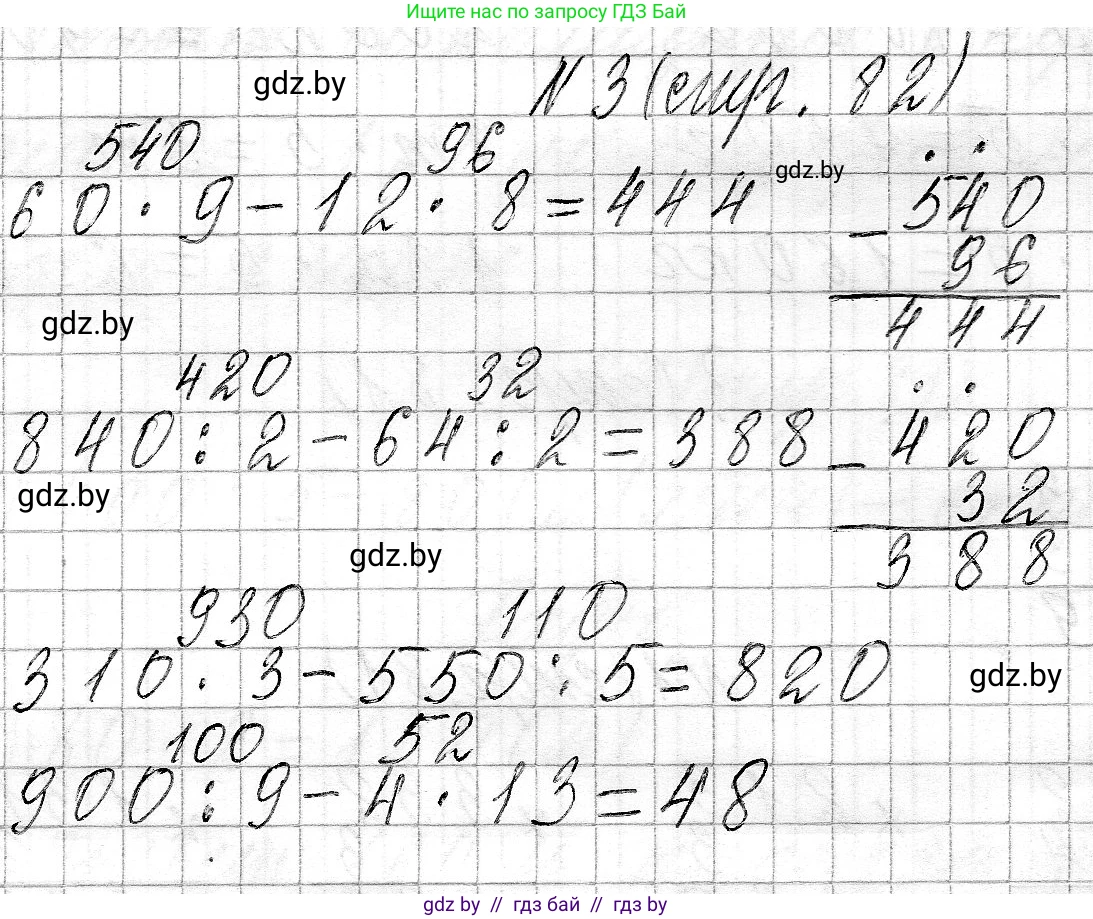 Ищите нас по запросу ГДЗ Бай
gdz.by
N 3 (стр. 82)
540 96
60 · 9 - 12 · 8 = 444
gdz.by
- 540
96
444
gdz.by
420 32
840 : 2 - 64 : 2 = 388
- 420
32
388
gdz.by
gdz.by
930 110
310 · 3 - 550 : 5 = 820
gdz.by
100 52
900 : 9 - 4 · 13 = 48
gdz by // гдз бай // гдз by